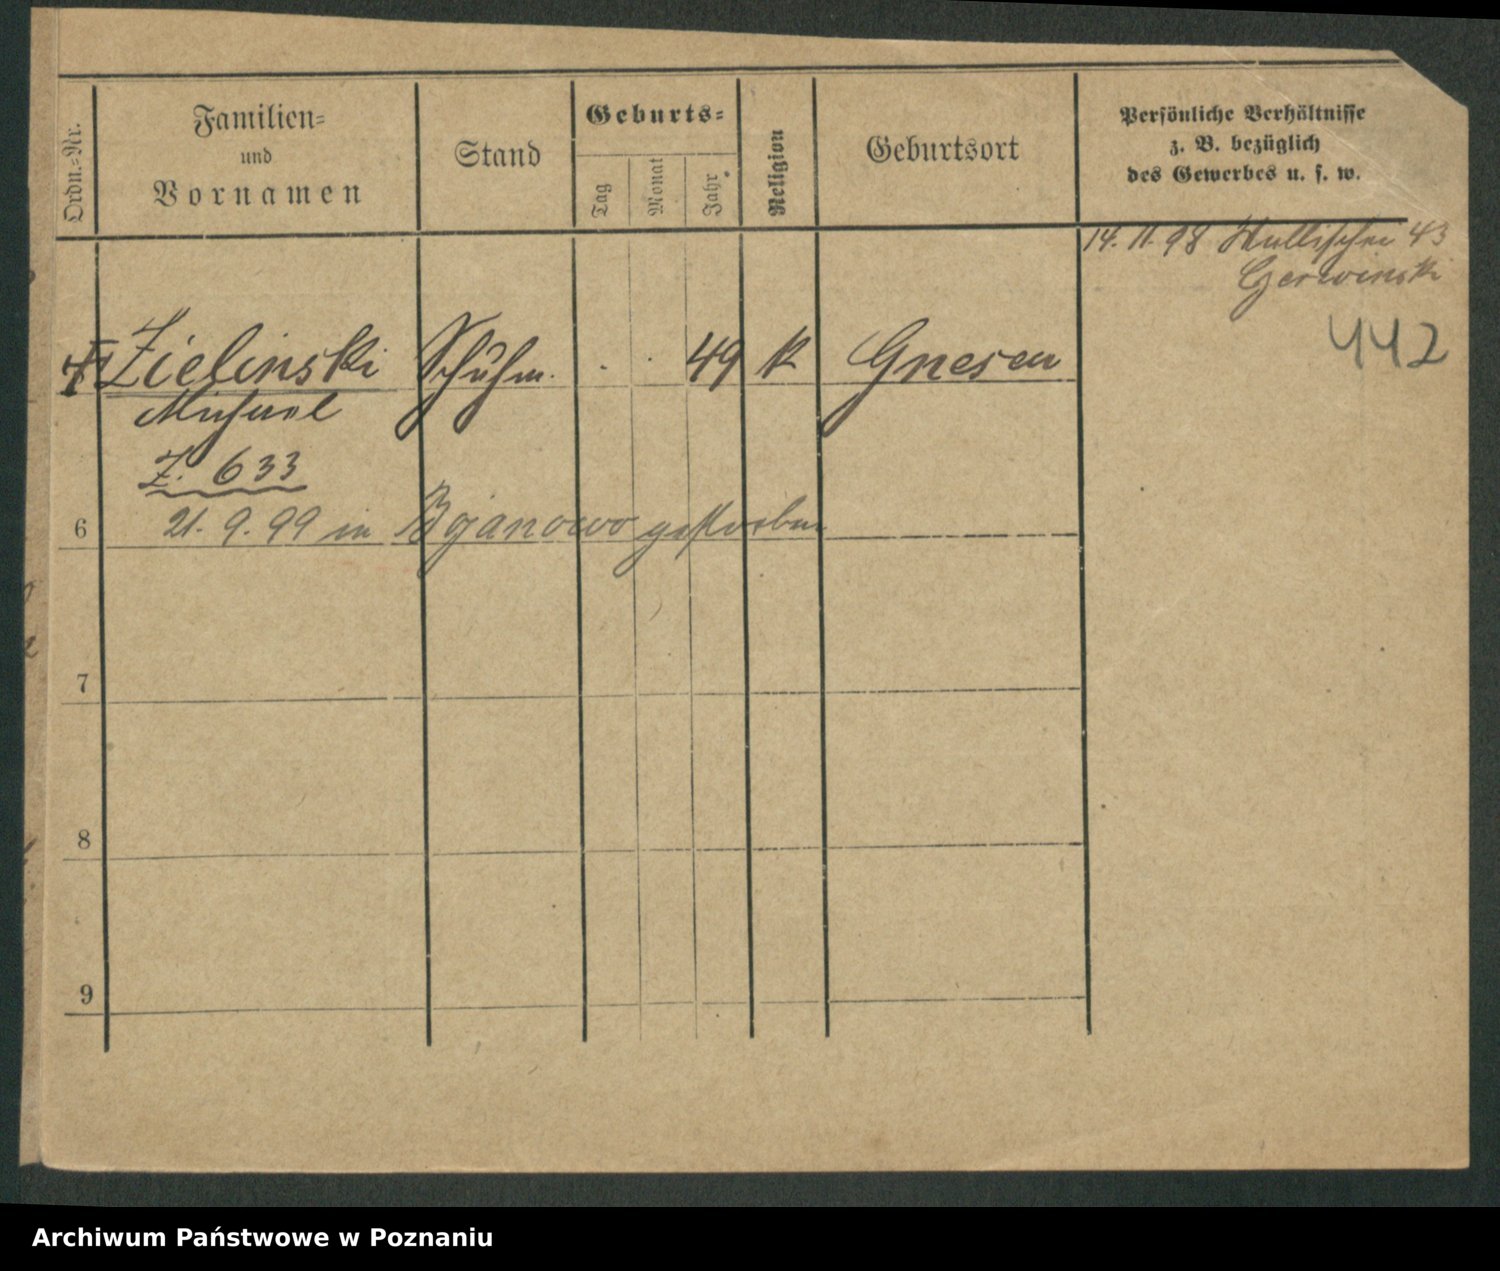 Ordn.-Nr.
Familien-
und
Vornamen
Stand
Geburts-
Tag
Monat
Jahr
Religion
Geburtsort
Persönliche Verhältnisse
z. B. bezüglich
des Gewerbes u. s. w.
14. 11. 98 Wallischei 43
Czerwinski
442
Zielinski Schuhm. . . 49 k Gnesen
Michael
Z. 633
21. 9. 99 in Bojanowo gestorben
6
7
8
9
Archiwum Państwowe w Poznaniu